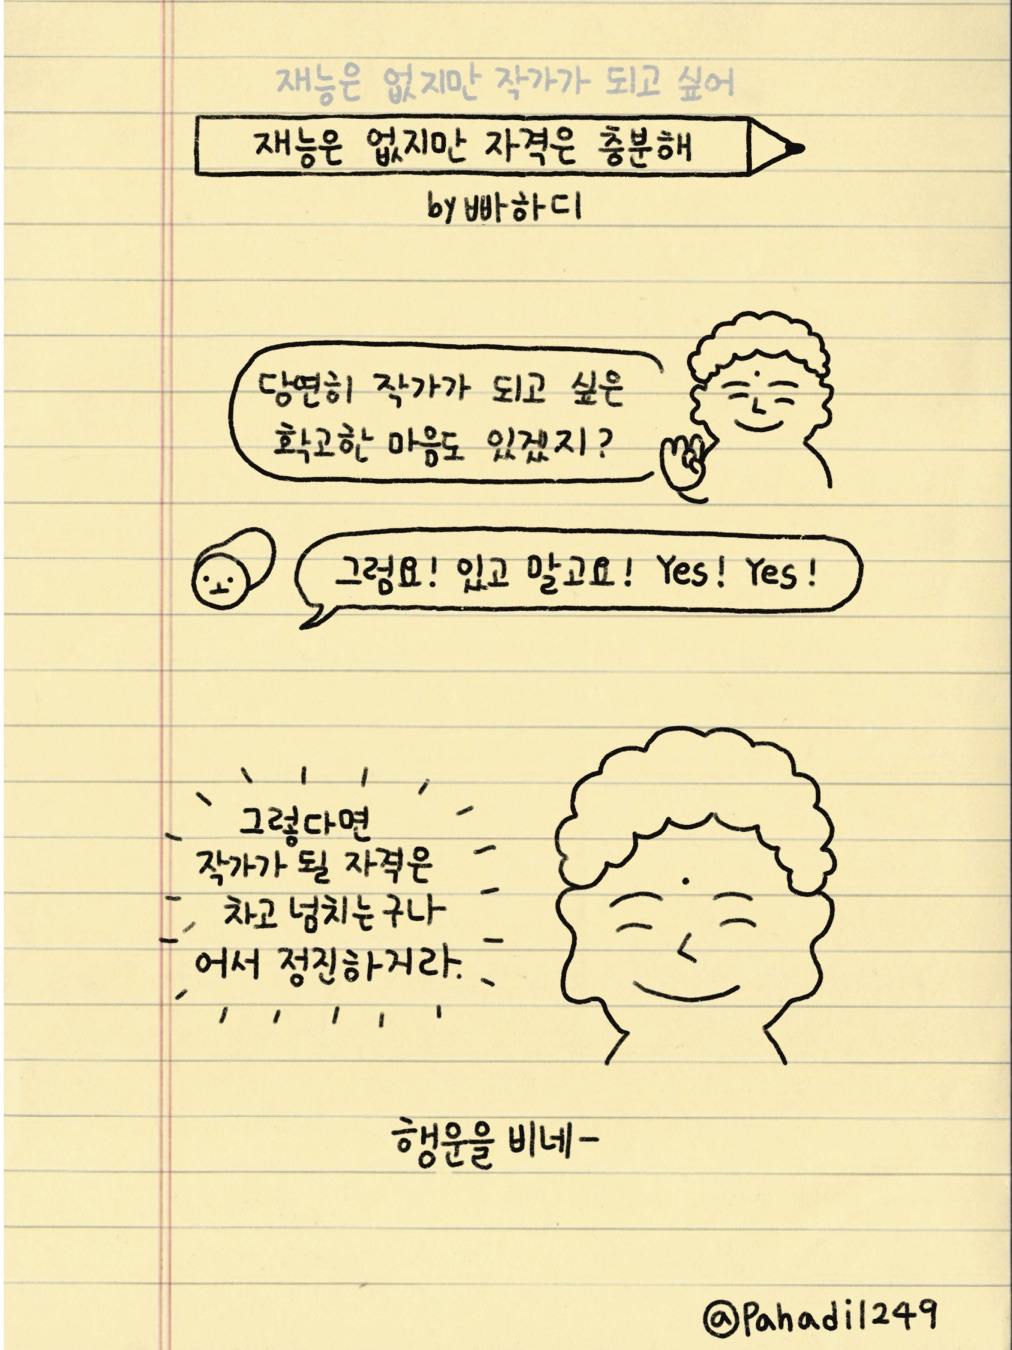 재능은 없지만 작가가 되고 싶어
재능은 없지만 자격은 충분해
by 빠하디
당연히 작가가 되고 싶은
확고한 마음도 있겠지?
그럼요! 있고 말고요! Yes! Yes!
그렇다면
작가가 될 자격은
차고 넘치는구나
어서 정진하거라.
행운을 비네-
@Pahadi1249